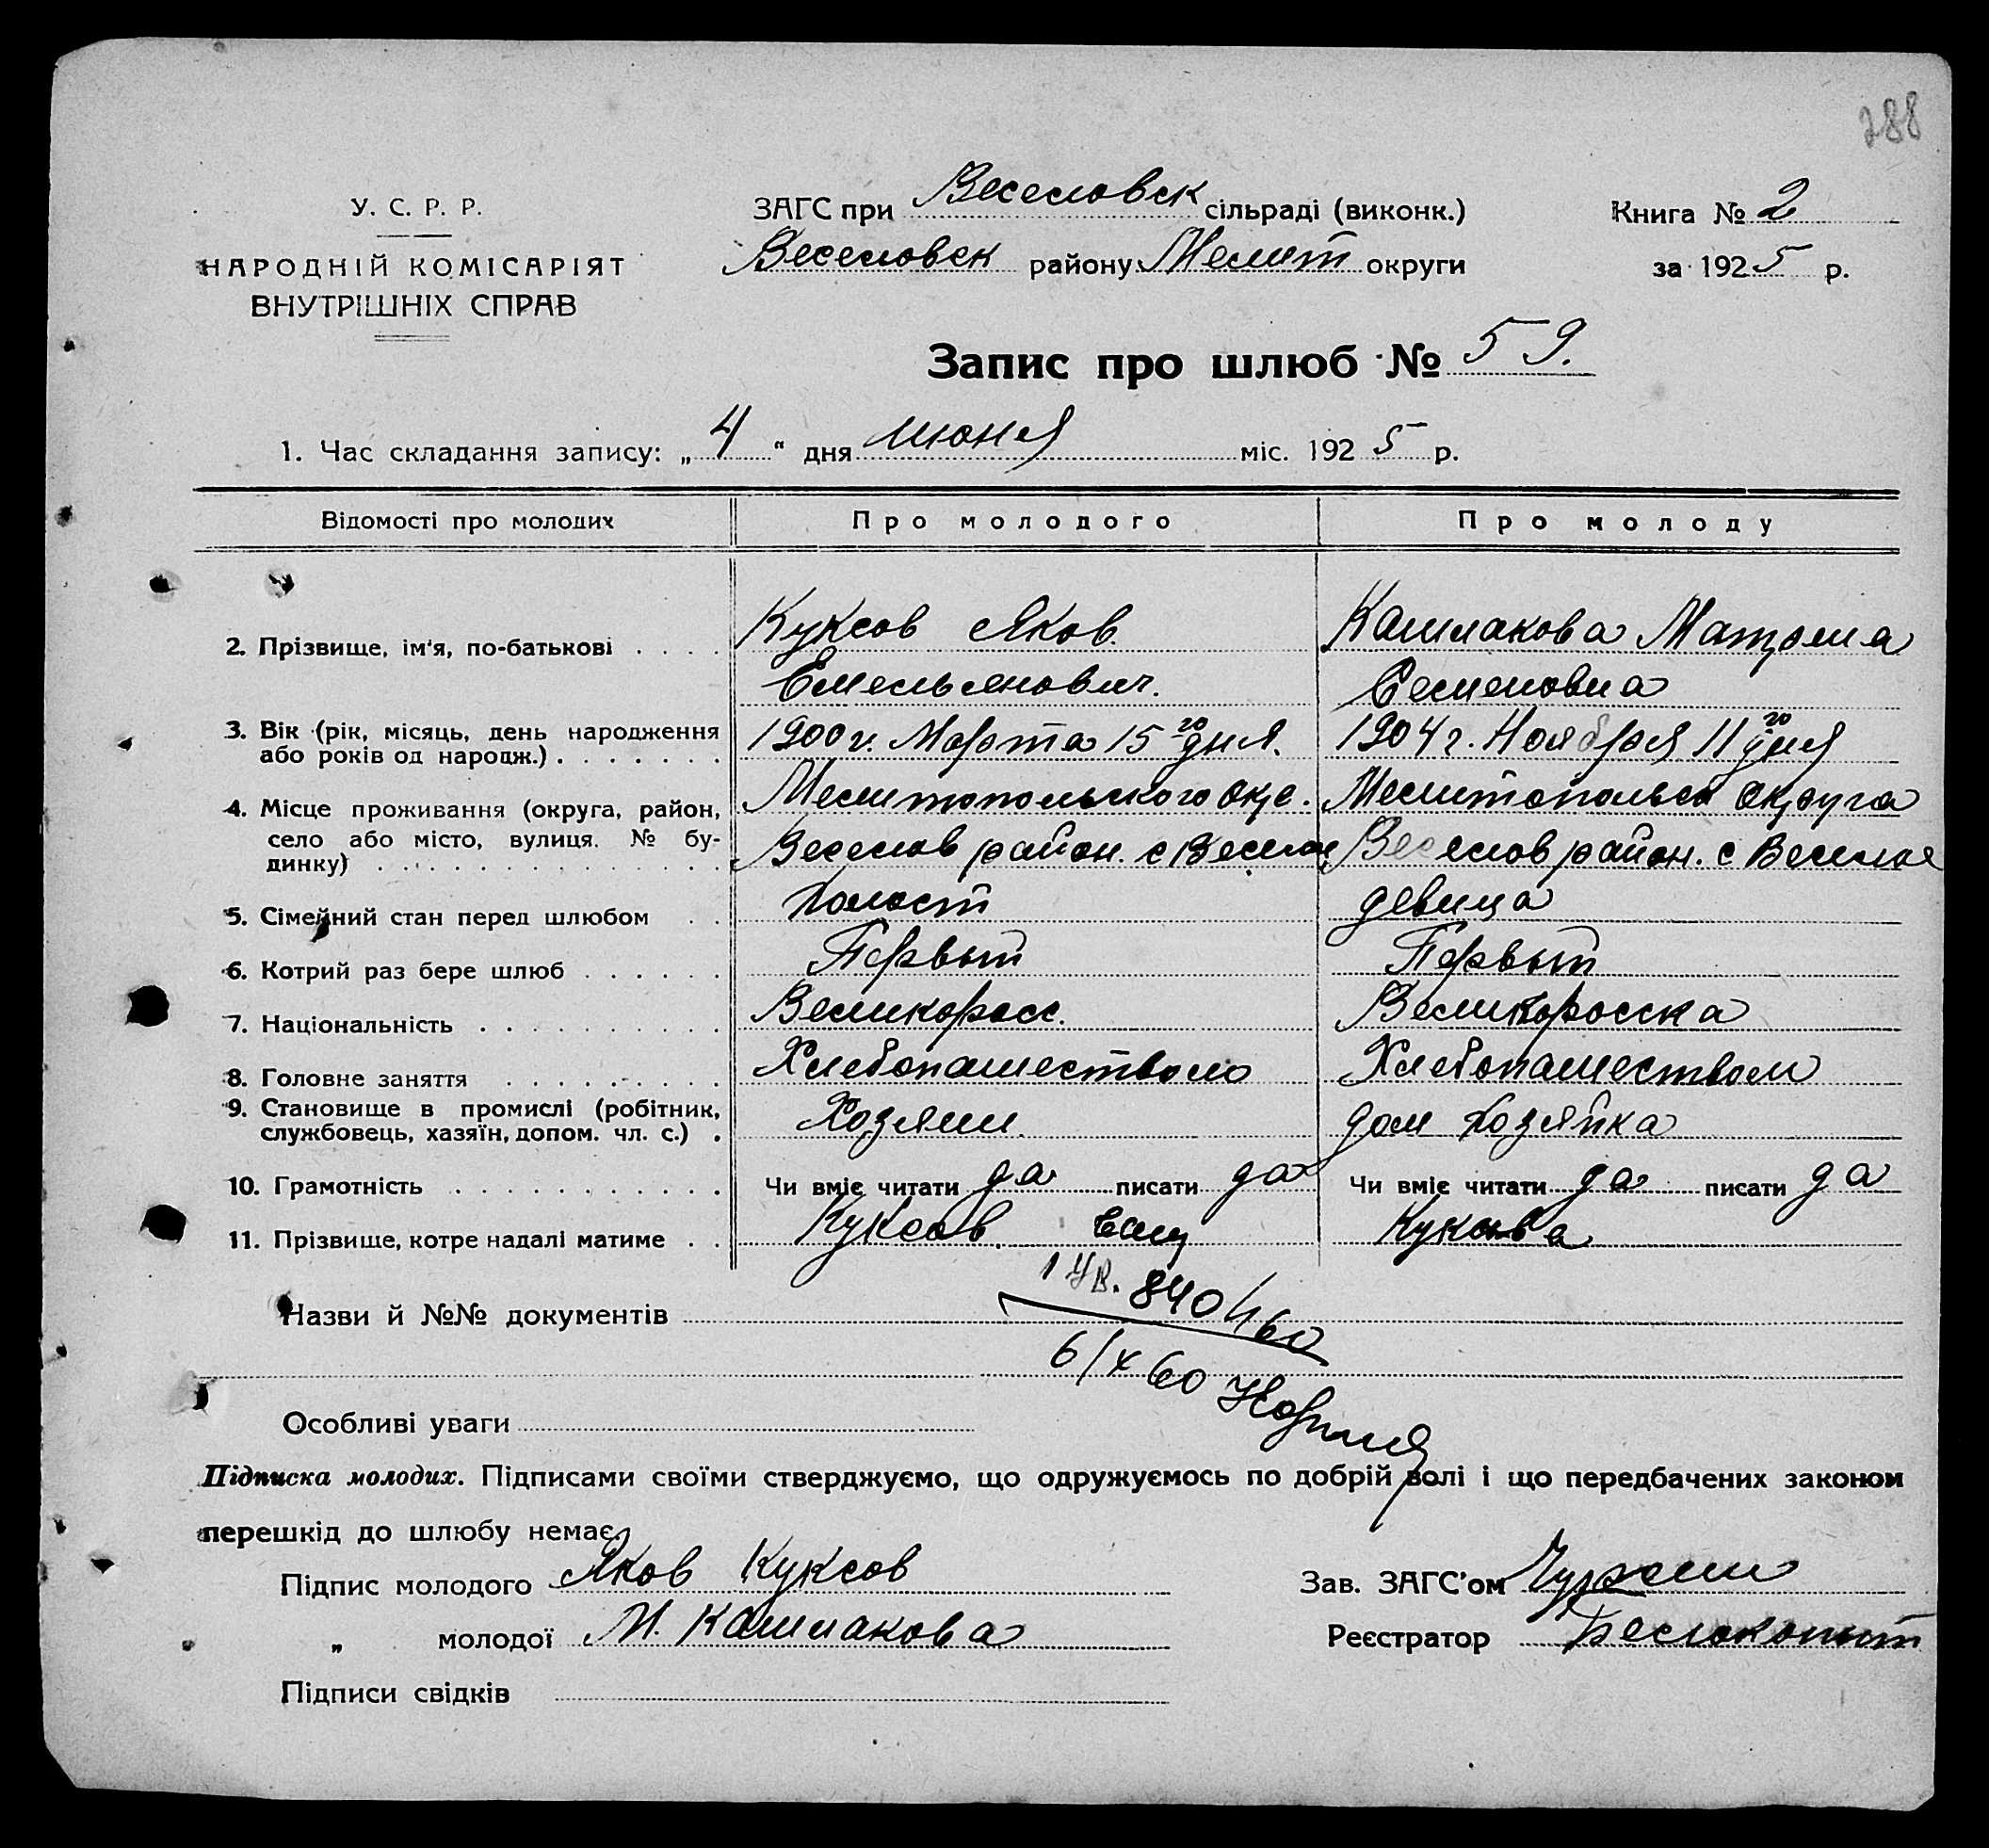 288
У. С. Р. Р.
НАРОДНІЙ КОМІСАРІЯТ
ВНУТРІШНІХ СПРАВ
ЗАГС при Веселовск сільраді (виконк.)
Веселовск району Мелит округи
Книга № 2
за 1925 р.
Запис про шлюб № 59.
1. Час складання запису: „4“ дня июня міс. 1925 р.
Відомості про молодих Про молодого Про молоду
2. Прізвище, ім'я, по-батькові . . . . Куксов Яков Кашлакова Матрона
Емельянович. Семеновна
3. Вік (рік, місяць, день народження 1900 г. Марта 15го дня. 1904 г. Ноября 11го дня
або років од народж.) . . . . . . .
4. Місце проживання (округа, район, Мелитопольского окр. Мелитопольск округа
село або місто, вулиця, № бу- Веселов район. с Веселое Веселов район. с Веселое
динку) . . . . . . . . . . . . . .
5. Сімейний стан перед шлюбом . . холост девица
6. Котрий раз бере шлюб . . . . . . Первый Первый
7. Національність . . . . . . . . . . Великоросс. Великоросска
8. Головне заняття . . . . . . . . . Хлебопашеством Хлебопашеством
9. Становище в промислі (робітник, Хозяин. дом хозяйка
службовець, хазяїн, допом. чл. с.) .
10. Грамотність . . . . . . . . . . . Чи вміє читати да писати да Чи вміє читати да писати да
11. Прізвище, котре надалі матиме . . Куксов Куксова
Назви й №№ документів
840/60
6/x 60
Особливі уваги
Підписка молодих. Підписами своїми стверджуємо, що одружуємось по добрій волі і що передбачених законом
перешкід до шлюбу немає.
Підпис молодого Яков Куксов Зав. ЗАГС'ом
„ молодої М. Кашлакова Реєстратор Белокопыт
Підписи свідків